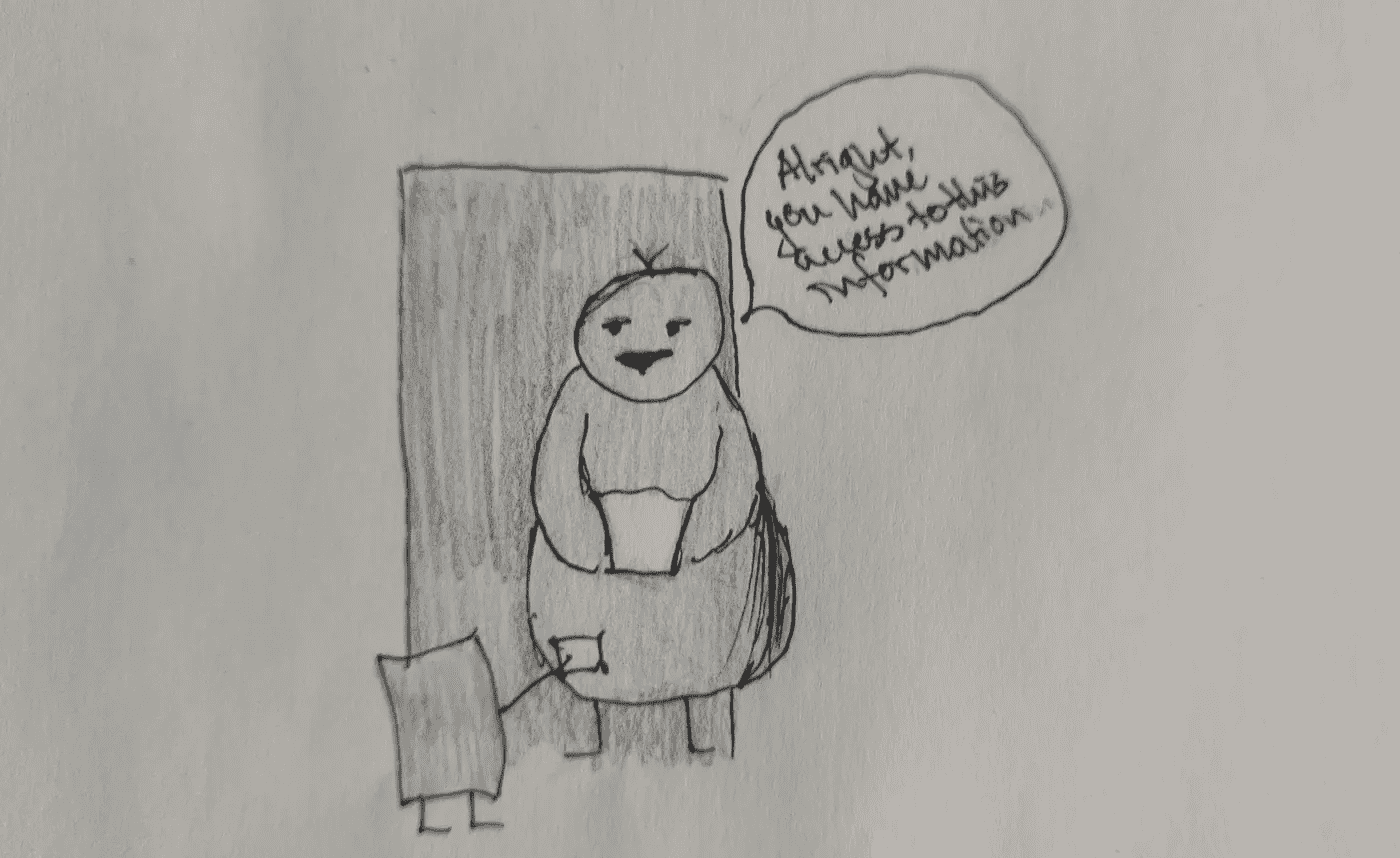 Alright,
you have
access to this
information...